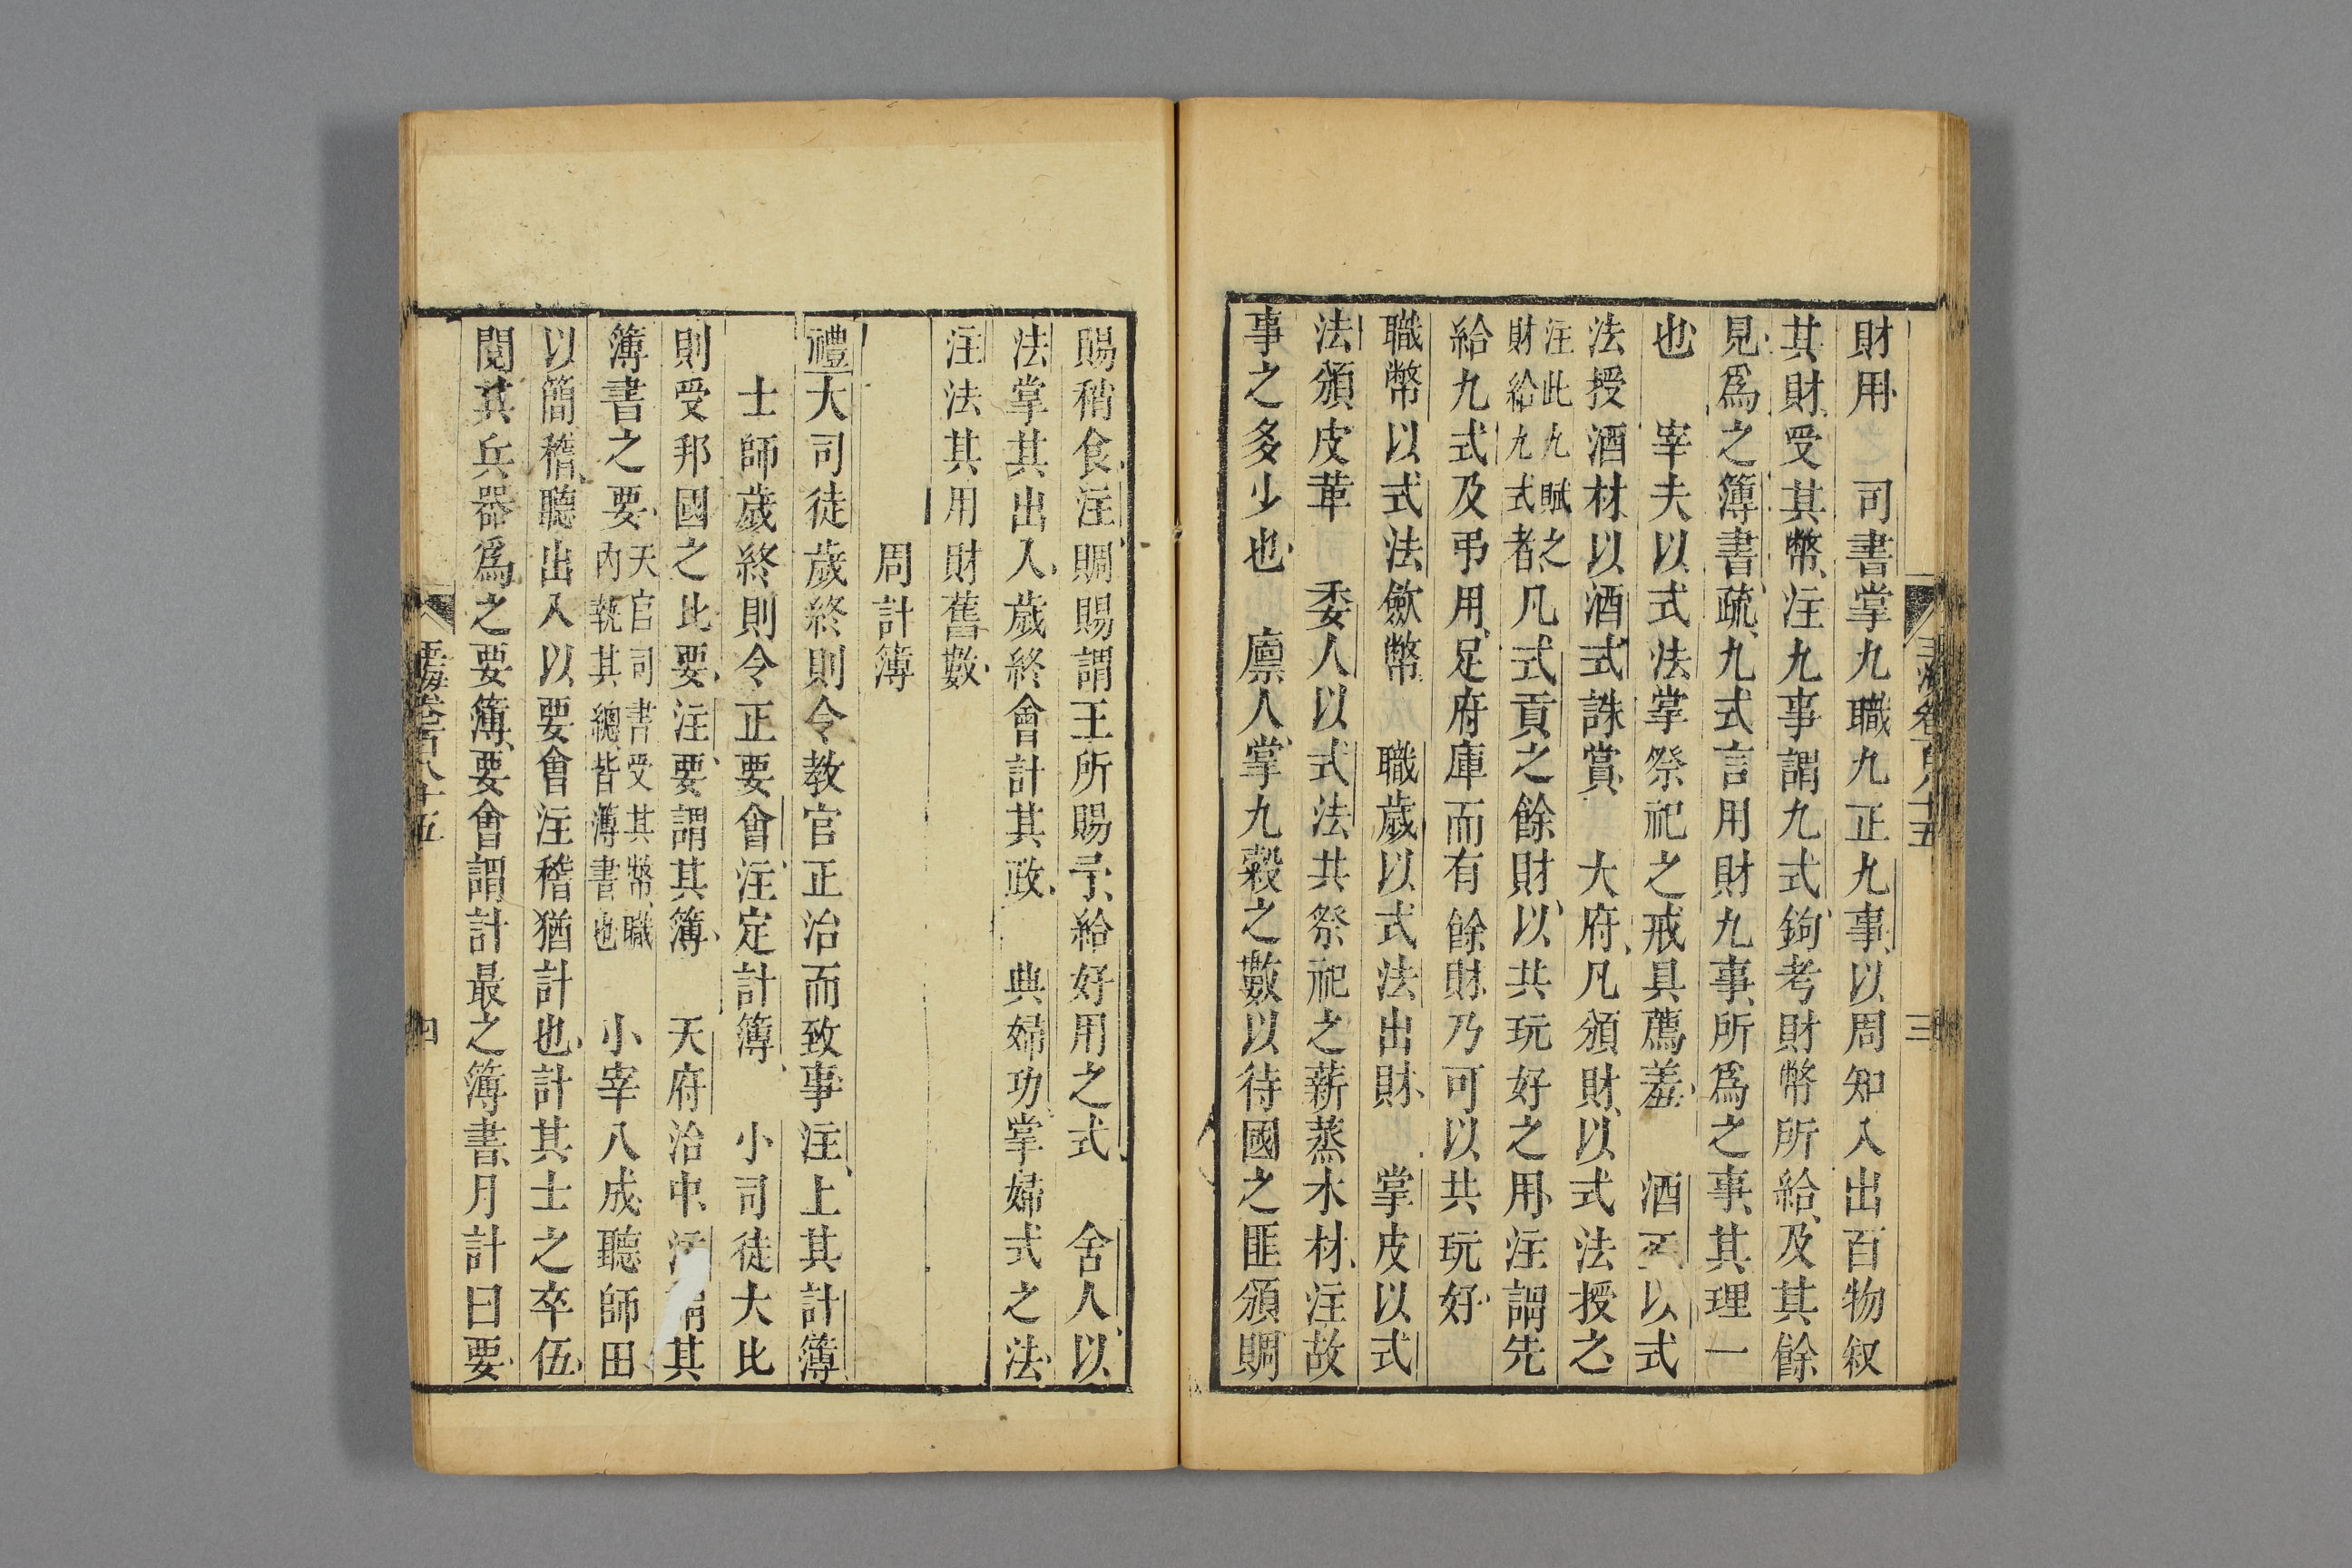 財用 司書掌九職九正九事以周知入出百物叙
其財受其幣注九事謂九式鉤考財幣所給及其餘
見爲之簿書疏九式言用財九事所爲之事其理一
也 宰夫以式法掌祭祀之戒具薦羞 酒正以式
法授酒材以酒式誅賞 大府凡頒財以式法授之
注此九賦之財給九式者凡式貢之餘財以共玩好之用注謂先
給九式及弔用足府庫而有餘財乃可以共玩好
職幣以式法斂幣 職歲以式法出財 掌皮以式
法頒皮革 委人以式法共祭祀之薪蒸木材注故
事之多少也 廩人掌九穀之數以待國之匪頒賙
賜稍食注賙賜謂王所賜予給好用之式 舍人以
法掌其出入歲終會計其政 典婦功掌婦式之法
注法其用財舊數
周計簿
禮大司徒歲終則令教官正治而致事注上其計簿
士師歲終則令正要會注定計簿 小司徒大比
則受邦國之比要注要謂其簿 天府治中 謂其
簿書之要天官司書受其幣職內執其總皆簿書也 小宰八成聽師田
以簡稽聽出入以要會注稽猶計也計其士之卒伍
閱其兵器爲之要簿要會謂計最之簿書月計曰要
玉海卷百八十五 三
玉海卷百八十五 四